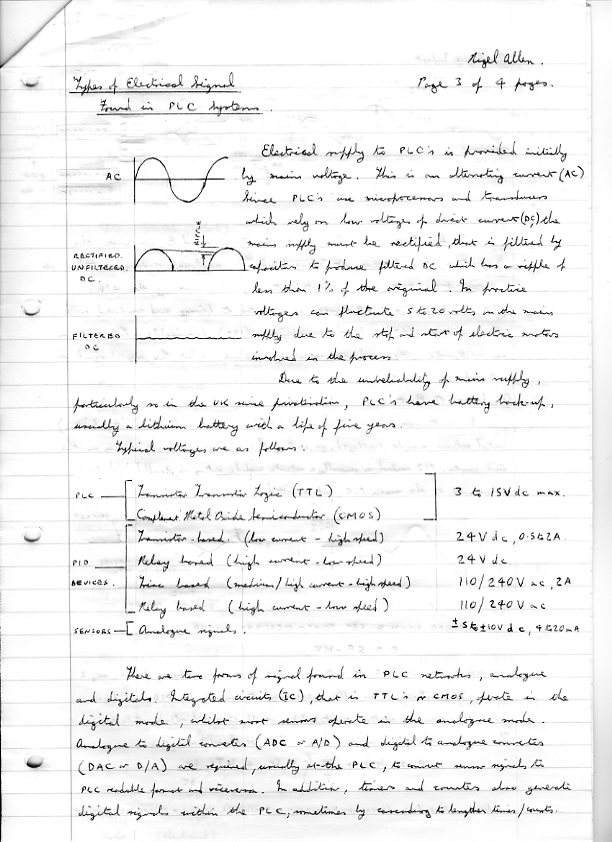 Nigel Allen.
Types of Electrical Signal
Page 3 of 4 pages.
Found in PLC Systems.
Electrical supply to PLC's is provided initially
AC
by mains voltage. This is an alternating current (AC)
Since PLC's use microprocessors and transducers
which rely on low voltages of direct current (DC), the
RIPPLE
mains supply must be rectified, that is filtered by
RECTIFIED
UNFILTERED
DC.
capacitors to produce filtered DC which has a ripple of
less than 1% of the original. In practice
voltages can fluctuate 5 to 20 volts in the mains
FILTERED
DC
supply due to the stop and start of electric motors
involved in the process.
Due to the unreliability of mains supply,
particularly so in the UK since privatisation, PLC's have battery back-up,
usually a lithium battery with a life of five years.
Typical voltages are as follows:
PLC
Transistor Transistor Logic (TTL)
3 to 15V dc max.
Complement Metal Oxide Semiconductor (CMOS)
Transistor-based (low current - high speed)
24V dc, 0.5 to 2A
PID
DEVICES.
Relay based (high current - low speed)
24V dc
Triac based (medium/high current - high speed)
110/240V ac, 2A
Relay based (high current - low speed)
110/240V ac
SENSORS
Analogue signals.
±5 to ±10V dc, 4 to 20mA
There are two forms of signal found in PLC networks, analogue
and digitals. Integrated circuits (IC), that is TTL's or CMOS, operate in the
digital mode, whilst most sensors operate in the analogue mode.
Analogue to digital converters (ADC or A/D) and digital to analogue converters
(DAC or D/A) are required, usually at the PLC, to convert sensor signals to
PLC readable format and viceversa. In addition, timers and counters also generate
digital signals within the PLC, sometimes by cascading to lengthen times/counts.